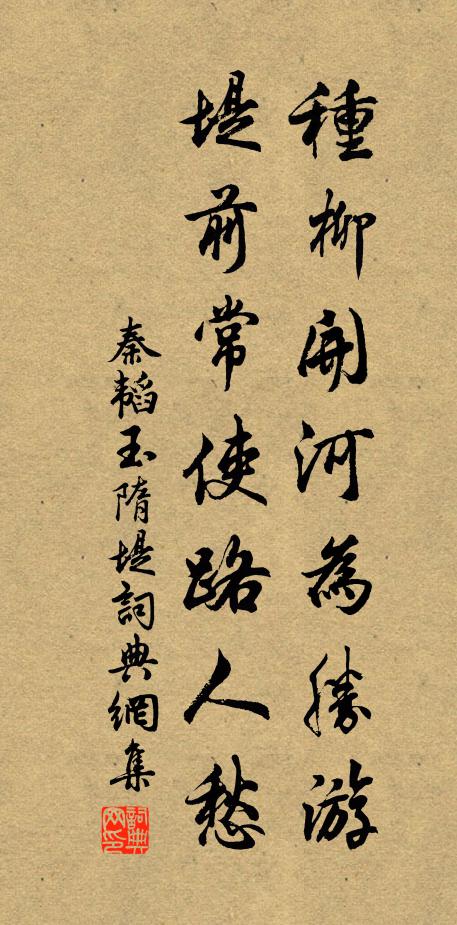 種柳開河為勝游
堤前常使路人愁
秦韜玉隋堤詞典網集
詞典網印